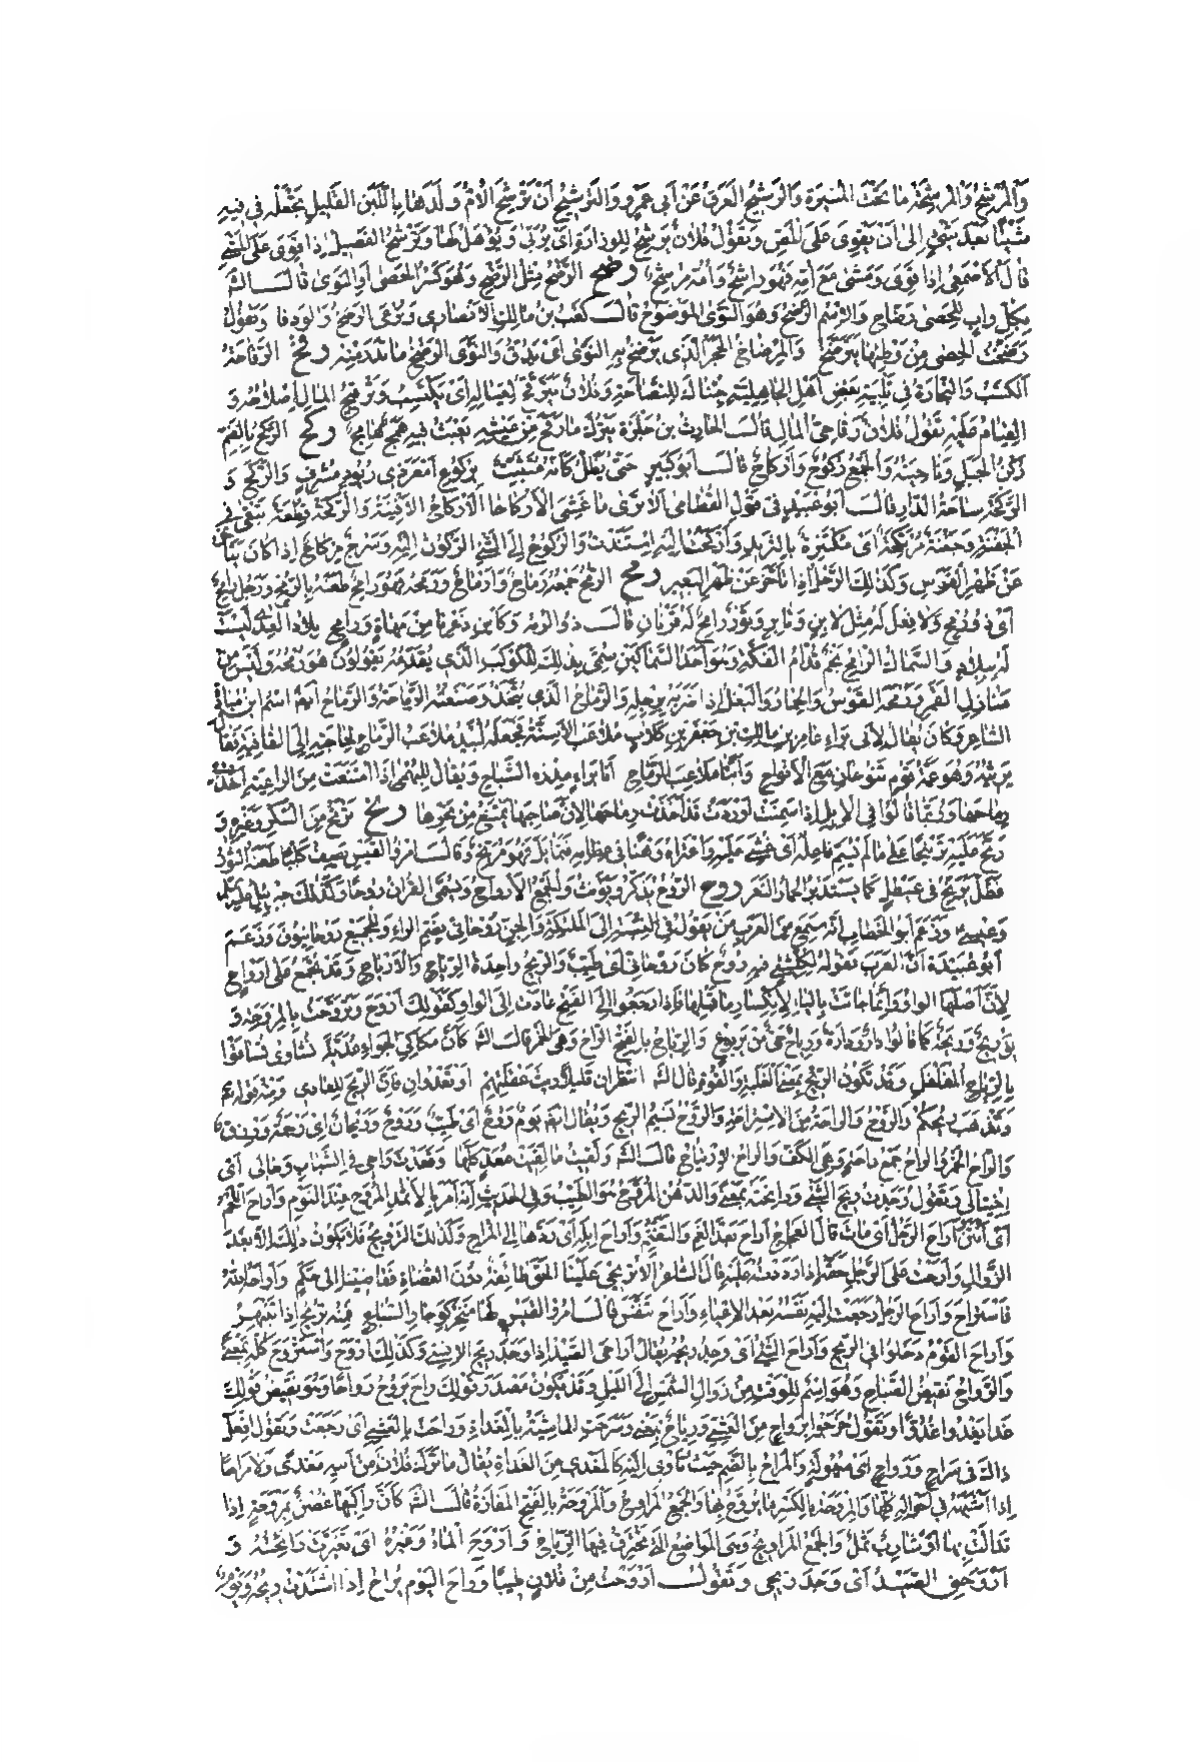 وَالْمِرْشَحُ وَالْمِرْشَحَةُ مَا تَحْتَ الْمِيثَرَةِ وَالرَّشْحُ الْعَرَقُ عَنْ أَبِي عَمْرٍو وَالتَّرْشِيحُ أَنْ تُرَشِّحَ الْأُمُّ وَلَدَهَا بِاللَّبَنِ الْقَلِيلِ تَجْعَلُهُ فِي فِيهِ
شَيْئًا بَعْدَ شَيْءٍ إِلَى أَنْ يَقْوَى عَلَى الْمَصِّ وَتَقُولُ فُلَانٌ يُرَشَّحُ لِلْوِزَارَةِ أَيْ يُرَبَّى وَيُؤَهَّلُ لَهَا وَتَرَشَّحَ الْفَصِيلُ إِذَا قَوِيَ عَلَى الْمَشْيِ
قَالَ الْأَصْمَعِيُّ إِذَا قَوِيَ وَمَشَى مَعَ أُمِّهِ فَهُوَ رَاشِحٌ وَأُمُّهُ مُرْشِحٌ رضح الرَّضْحُ مِثْلُ الرَّضْخِ وَهُوَ كَسْرُ الْحَصَى أَوِ النَّوَى قَالَ الشَّ
بِكُلِّ وَأْبٍ لِلْحَصَى رَضَّاحِ وَالِاسْمُ الرُّضْحُ وَهُوَ النَّوَى الْمَرْضُوحُ قَالَ كَعْبُ بْنُ مَالِكٍ الْأَنْصَارِيُّ وَتَرْعَى الرَّضْحَ وَالْوَرَقَا وَتَقُولُ
رَضَحْتُ الْحَصَى فَتَرَضَّحَ وَالْمِرْضَاحُ الْحَجَرُ الَّذِي يُرْضَحُ بِهِ النَّوَى أَيْ يُدَقُّ وَالنَّوَى الرَّضْحُ مَا نَدَرَ مِنْهُ رقح الرَّقَاحَةُ
الْكَسْبُ وَالتِّجَارَةُ فِي تَلْبِيَةِ بَعْضِ أَهْلِ الْجَاهِلِيَّةِ جِئْنَاكَ لِلنَّصَاحَةِ وَفُلَانٌ يَتَرَقَّحُ لِعِيَالِهِ أَيْ يَكْتَسِبُ وَتَرْقِيحُ الْمَالِ إِصْلَاحُهُ وَ
الْقِيَامُ عَلَيْهِ تَقُولُ فُلَانٌ رَقَاحِيُّ الْمَالِ قَالَ الْحَارِثُ بْنُ حِلِّزَةَ يَتْرُكُ مَا رَقَّحَ مِنْ عَيْشِهِ يَعِيثُ فِيهِ هَمَجٌ هَامِجُ ركح الرُّكْحُ بِالضَّمِّ
رُكْنُ الْجَبَلِ وَنَاحِيَتُهُ وَالْجَمْعُ رُكُوحٌ وَأَرْكَاحٌ قَالَ أَبُو كَبِيرٍ حَتَّى يَظَلَّ كَأَنَّهُ مُتَثَبِّتٌ بِرُكُوحِ أَمْعَزَ ذِي رُيُودٍ مُشْرِفِ وَالرُّكْحُ وَ
الرُّكْحَةُ سَاحَةُ الدَّارِ قَالَ أَبُو عُبَيْدٍ فِي قَوْلِ الْقُطَامِيِّ أَلَا تَرَى مَا غَشِيَ الْأَرْكَاحَا الْأَرْكَاحُ الْأَفْنِيَةُ وَالرُّكْحَةُ قِطْعَةٌ تَبْقَى فِي
الْجَفْنَةِ وَجَفْنَةٌ مُرْتَكِحَةٌ أَيْ مُكْتَنِزَةٌ بِالثَّرِيدِ وَأَرْكَحْتُ إِلَيْهِ اسْتَنَدْتُ وَالرُّكُوحُ إِلَى الشَّيْءِ الرُّكُونُ إِلَيْهِ وَسَرْجٌ مِرْكَاحٌ إِذَا كَانَ يَتَأَخَّرُ
عَنْ ظَهْرِ الْفَرَسِ وَكَذَلِكَ الرَّحْلُ إِذَا تَأَخَّرَ عَنْ ظَهْرِ الْبَعِيرِ رمح الرُّمْحُ جَمْعُهُ رِمَاحٌ وَأَرْمَاحٌ وَرَمَحَهُ فَهُوَ رَامِحٌ طَعَنَهُ بِالرُّمْحِ وَرَجُلٌ رَامِحٌ
أَيْ ذُو رُمْحٍ وَلَا فِعْلَ لَهُ مِثْلُ لَابِنٍ وَتَامِرٍ وَثَوْرٌ رَامِحٌ لَهُ قَرْنَانِ قَالَ ذُو الرُّمَّةِ وَكَائِنْ ذَعَرْنَا مِنْ مَهَاةٍ وَرَامِحٍ بِلَادُ الْعِدَى لَيْسَتْ
لَهُ بِبِلَادِ وَالسِّمَاكُ الرَّامِحُ نَجْمٌ قُدَّامَ الْفَكَّةِ وَهُوَ أَحَدُ السِّمَاكَيْنِ سُمِّيَ بِذَلِكَ لِلْكَوْكَبِ الَّذِي يُقَدِّمُهُ يَقُولُونَ هُوَ رُمْحُهُ وَلَيْسَ مِنْ
مَنَازِلِ الْقَمَرِ وَرَمَحَهُ الْفَرَسُ وَالْحِمَارُ وَالْبَغْلُ إِذَا ضَرَبَهُ بِرِجْلِهِ وَالرَّمَّاحُ الَّذِي يَتَّخِذُ وَصَنْعَتُهُ الرِّمَاحَةُ وَالرَّمَّاحُ أَيْضًا اسْمُ ابْنِ مَيَّادَةَ
الشَّاعِرِ وَكَانَ يُقَالُ لِأَبِي بَرَاءٍ عَامِرِ بْنِ مَالِكِ بْنِ جَعْفَرِ بْنِ كِلَابٍ مُلَاعِبُ الْأَسِنَّةِ فَجَعَلَهُ لَبِيدٌ مُلَاعِبَ الرِّمَاحِ لِحَاجَتِهِ إِلَى الْقَافِيَةِ فَقَالَ
يَرْثِيهِ وَهُوَ عَمُّهُ قُومَا تَنُوحَانِ مَعَ الْأَنْوَاحِ وَأَبِّنَا مُلَاعِبَ الرِّمَاحِ أَبَا بَرَاءٍ مِدْرَهَ الشِّيَاحِ وَيُقَالُ لِلْبُهْمَى إِذَا امْتَنَعَتْ مِنَ الرَّاعِيَةِ أَخَذَتْ
رِمَاحَهَا وَرُبَّمَا قَالُوا فِي الْإِبِلِ إِذَا سَمِنَتْ أَوْ دَرَّتْ قَدْ أَخَذَتْ رِمَاحَهَا لِأَنَّ صَاحِبَهَا يَمْتَنِعُ مِنْ نَحْرِهَا رنح تَرَنَّحَ مِنَ السُّكْرِ وَغَيْرِهِ وَ
رُنِّحَ عَلَيْهِ تَرْنِيحًا عَلَى مَا لَمْ يُسَمَّ فَاعِلُهُ أَيْ غُشِيَ عَلَيْهِ وَاعْتَرَاهُ وَهْنٌ فِي عِظَامِهِ فَتَمَايَلَ فَهُوَ مُرَنَّحٌ وَقَالَ امْرُؤُ الْقَيْسِ يَصِفُ كَلْبًا طَعَنَهُ الثَّوْرُ
فَظَلَّ يُرَنِّحُ فِي غَيْطَلٍ كَمَا يَسْتَدِيرُ الْحِمَارُ النَّعِرْ روح الرُّوحُ يُذَكَّرُ وَيُؤَنَّثُ وَالْجَمْعُ الْأَرْوَاحُ وَيُسَمَّى الْقُرْآنُ رُوحًا وَكَذَلِكَ جِبْرِيلُ عَلَيْهِ
وَعِيسَى وَزَعَمَ أَبُو الْخَطَّابِ أَنَّهُ سَمِعَ مِنَ الْعَرَبِ مَنْ يَقُولُ فِي النِّسْبَةِ إِلَى الْمَلَائِكَةِ وَالْجِنِّ رُوحَانِيٌّ بِضَمِّ الرَّاءِ وَلِلْجَمِيعِ رُوحَانِيُّونَ وَزَعَمَ
أَبُو عُبَيْدَةَ أَنَّ الْعَرَبَ تَقُولُهُ لِكُلِّ شَيْءٍ فِيهِ رُوحٌ مَكَانٌ رَوْحَانِيٌّ أَيْ طَيِّبٌ وَالرِّيحُ وَاحِدَةُ الرِّيَاحِ وَالْأَرْيَاحِ وَقَدْ تُجْمَعُ عَلَى أَرْوَاحٍ
لِأَنَّ أَصْلَهَا الْوَاوُ وَإِنَّمَا جَاءَتْ بِالْيَاءِ لِانْكِسَارِ مَا قَبْلَهَا فَإِذَا رَجَعُوا إِلَى الْفَتْحِ عَادَتْ إِلَى الْوَاوِ كَقَوْلِكَ أَرْوَحَ وَتَرَوَّحْتُ بِالْمِرْوَحَةِ وَ
رِيحٌ وَرِيحَةٌ كَمَا قَالُوا دَارٌ وَدَارَةٌ وَرِيَاحٌ حَيٌّ مِنْ يَرْبُوعٍ وَالرَّيَاحُ بِالْفَتْحِ الرَّاحُ وَهِيَ الْخَمْرُ قَالَ الشَّ كَأَنَّ مَكَاكِيَّ الْجِوَاءِ غُدَيَّةً نَشَاوَى تَسَاقَوْا
بِالرَّيَاحِ الْمُفَلْفَلِ وَقَدْ تَكُونُ الرِّيحُ بِمَعْنَى الْغَلَبَةِ وَالْقُوَّةِ قَالَ الشَّ أَتَنْظُرَانِ قَلِيلًا رَيْثَ غَفْلَتِهِمْ أَوْ تَعْدُوَانِ فَإِنَّ الرِّيحَ لِلْعَادِي وَمِنْهُ قَوْلُهُ تَعَ
وَتَذْهَبَ رِيحُكُمْ وَالرَّوْحُ وَالرَّاحَةُ مِنَ الِاسْتِرَاحَةِ وَالرَّوْحُ نَسِيمُ الرِّيحِ وَيُقَالُ أَيْضًا يَوْمٌ رَوْحٌ أَيْ طَيِّبٌ وَرَوْحٌ وَرَيْحَانٌ أَيْ رَحْمَةٌ وَرِزْقٌ
وَالرَّاحُ الْخَمْرُ وَالرَّاحُ جَمْعُ رَاحَةٍ وَهِيَ الْكَفُّ وَالرَّاحُ الِارْتِيَاحُ قَالَ الشَّ وَلَقِيتُ مَا لَقِيَتْ مَعَدٌّ كُلُّهَا وَفَقَدْتُ رَاحِي فِي الشَّبَابِ وَخَالِي أَيْ
اخْتِيَالِي وَتَقُولُ وَجَدْتُ رِيحَ الشَّيْءِ وَرَائِحَتَهُ بِمَعْنًى وَالدُّهْنُ الْمُرَوَّحُ هُوَ الْمُطَيَّبُ وَفِي الْحَدِيثِ أَنَّهُ أَمَرَ بِالْإِثْمِدِ الْمُرَوَّحِ عِنْدَ النَّوْمِ وَأَرَاحَ اللَّحْمُ
أَيْ أَنْتَنَ أَرَاحَ الرَّجُلُ أَيْ مَاتَ قَالَ الْعَجَّاجُ أَرَاحَ بَعْدَ الْغَمِّ وَالتَّغَمُّمِ وَأَرَاحَ إِبِلَهُ أَيْ رَدَّهَا إِلَى الْمُرَاحِ وَكَذَلِكَ التَّرْوِيحُ فَلَا يَكُونُ ذَلِكَ إِلَّا بَعْدَ
الزَّوَالِ وَأَرَحْتُ عَلَى الرَّجُلِ حَقَّهُ إِذَا رَدَدْتُهُ عَلَيْهِ قَالَ الشَّاعِرُ إِلَّا تُرِيحِي عَلَيْنَا الْحَقَّ طَائِعَةً دُونَ الْقُضَاةِ فَقَاضِينَا إِلَى حَكَمِ وَأَرَاحَهُ اللَّهُ
فَاسْتَرَاحَ وَأَرَاحَ الرَّجُلُ رَجَعَتْ إِلَيْهِ نَفْسُهُ بَعْدَ الْإِعْيَاءِ وَأَرَاحَ تَنَفَّسَ قَالَ امْرُؤُ الْقَيْسِ لَهَا مَنْخِرٌ كَوِجَارِ السِّبَاعِ فَمِنْهُ تُرِيحُ إِذَا تَنْبَهِرُ
وَأَرَاحَ الْقَوْمُ دَخَلُوا فِي الرِّيحِ وَأَرَاحَ الشَّيْءَ أَيْ وَجَدَ رِيحَهُ يُقَالُ أَرَاحَنِي الصَّيْدُ إِذَا وَجَدَ رِيحَ الْإِنْسِيِّ وَكَذَلِكَ أَرْوَحَ وَاسْتَرْوَحَ كُلُّهُ بِمَعْنًى
وَالرَّوَاحُ نَقِيضُ الصَّبَاحِ وَهُوَ اسْمٌ لِلْوَقْتِ مِنْ زَوَالِ الشَّمْسِ إِلَى اللَّيْلِ وَقَدْ يَكُونُ مَصْدَرَ قَوْلِكَ رَاحَ يَرُوحُ رَوَاحًا وَهُوَ نَقِيضُ قَوْلِكَ
غَدَا يَغْدُو غُدُوًّا وَتَقُولُ خَرَجُوا بِرَوَاحٍ مِنَ الْعَشِيِّ وَرِيَاحٍ بِمَعْنًى وَسَرَحَتِ الْمَاشِيَةُ بِالْغَدَاةِ وَرَاحَتْ بِالْعَشِيِّ أَيْ رَجَعَتْ وَتَقُولُ افْعَلْ
ذَاكَ فِي سَرَاحٍ وَرَوَاحٍ أَيْ سُهُولَةٍ وَالْمُرَاحُ بِالضَّمِّ حَيْثُ تَأْوِي إِلَيْهِ كَالْمَغْدَى مِنَ الْغَدَاةِ يُقَالُ مَا تَرَكَ فُلَانٌ مِنْ أَبِيهِ مَغْدًى وَلَا مَرَاحًا
إِذَا أَشْبَهَهُ فِي أَحْوَالِهِ كُلِّهَا وَالْمِرْوَحَةُ بِالْكَسْرِ مَا يُتَرَوَّحُ بِهَا وَالْجَمْعُ الْمَرَاوِحُ وَالْمَرْوَحَةُ بِالْفَتْحِ الْمَفَازَةُ قَالَ الشَّ كَأَنَّ رَاكِبَهَا غُصْنٌ بِمَرْوَحَةٍ إِذَا
تَدَلَّتْ بِهِ أَوْ شَارِبٌ ثَمِلُ وَالْجَمْعُ الْمَرَاوِيحُ وَهِيَ الْمَوَاضِعُ الَّتِي تَخْتَرِقُ فِيهَا الرِّيَاحُ وَأَرْوَحَ الْمَاءُ وَغَيْرُهُ أَيْ تَغَيَّرَتْ رَائِحَتُهُ وَ
أَرْوَحَنِي الصَّيْدُ أَيْ وَجَدَ رِيحِي وَتَقُولُ أَرْوَحْتُ مِنْ فُلَانٍ طِيبًا وَرَاحَ الْيَوْمُ يَرَاحُ إِذَا اشْتَدَّتْ رِيحُهُ وَيَوْمٌ